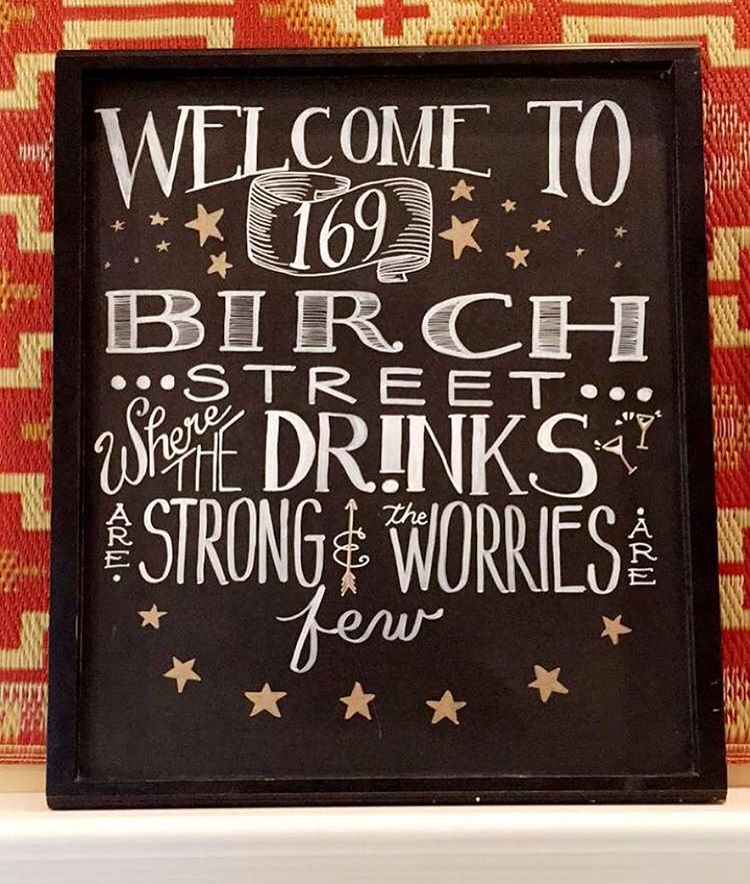 WELCOME TO
169
BIRCH
...STREET...
Where THE DRINKS
ARE STRONG & the WORRIES ARE
few